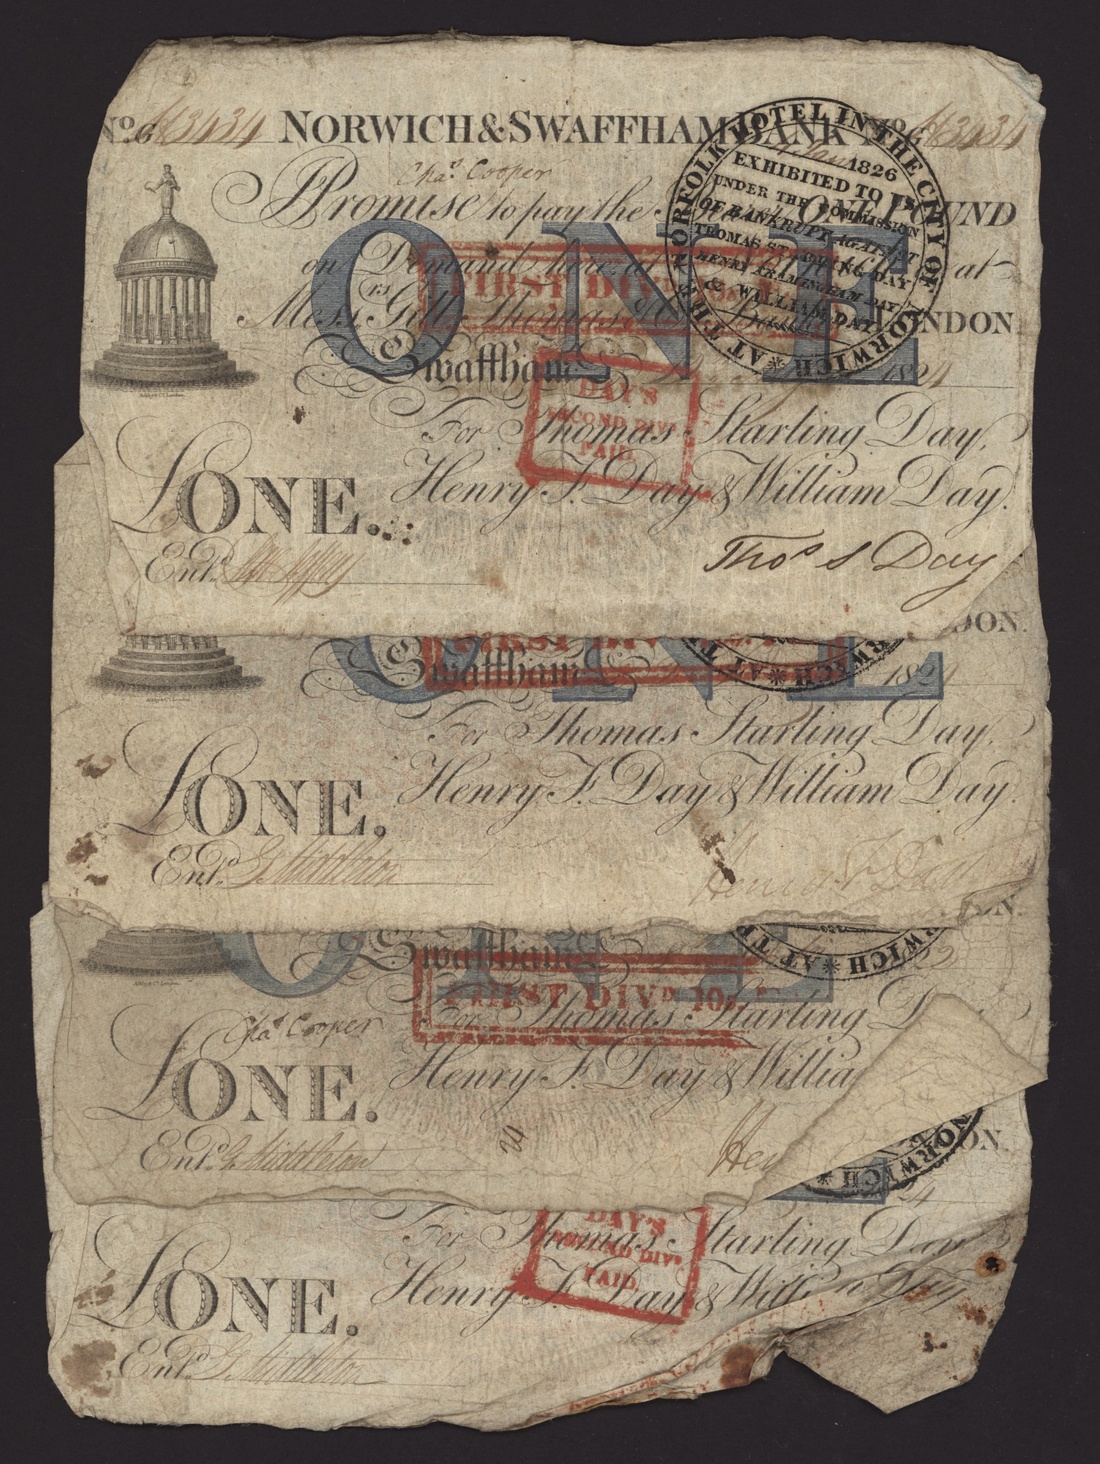 No. G63434 NORWICH & SWAFFHAM BANK No. G63434
Chas. Cooper
I Promise to pay the ONE POUND
on Demand here, or at
Messrs. Gill Thomas LONDON
Swaffham 1824
ONE
For Thomas Starling Day,
Henry F. Day & William Day.
£ONE.
Entd.
Thos S Day
AT THE NORFOLK HOTEL IN THE CITY OF NORWICH
1826
EXHIBITED TO US
UNDER THE COMMISSION
OF BANKRUPT AGAINST
THOMAS STARLING DAY
HENRY FRAMINGHAM DAY
& WILLIAM DAY
FIRST DIVD
DAY'S
SECOND DIVD
PAID
DON.
Swaffham 1824
FIRST DIV
RWICH AT T
For Thomas Starling Day,
Henry F. Day & William Day.
£ONE.
Entd. G Middleton
Henry F Day
N.
Swaffham
RWICH AT T
FIRST DIVD 10
For Thomas Starling D
Chas. Cooper
Henry F. Day & Willia
£ONE.
Entd. G Middleton
Hen
24
NORWICH
ON.
24
For Thomas Starling Day
DAY'S
SECOND DIVD
PAID
Henry F. Day & Will Day
£ONE.
Entd. G Middleton